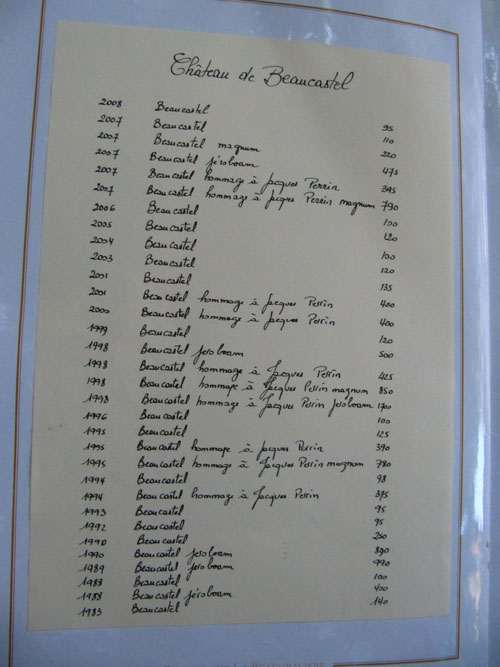 Château de Beaucastel
2008 Beaucastel 95
2007 Beaucastel 110
2007 Beaucastel magnum 220
2007 Beaucastel jéroboam 475
2007 Beaucastel hommage à Jacques Perrin 395
2007 Beaucastel hommage à Jacques Perrin magnum 790
2006 Beaucastel 100
2005 Beaucastel 120
2004 Beaucastel 100
2003 Beaucastel 120
2001 Beaucastel 135
2001 Beaucastel hommage à Jacques Perrin 400
2000 Beaucastel hommage à Jacques Perrin 400
1999 Beaucastel 120
1998 Beaucastel jeroboam 500
1998 Beaucastel hommage à Jacques Perrin 425
1998 Beaucastel hommage à Jacques Perrin magnum 850
1998 Beaucastel hommage à Jacques Perrin jeroboam 1700
1996 Beaucastel 100
1995 Beaucastel 125
1995 Beaucastel hommage à Jacques Perrin 390
1995 Beaucastel hommage à Jacques Perrin magnum 780
1994 Beaucastel 98
1994 Beaucastel hommage à Jacques Perrin 375
1993 Beaucastel 95
1992 Beaucastel 95
1990 Beaucastel 250
1990 Beaucastel jeroboam 890
1989 Beaucastel jeroboam 990
1988 Beaucastel 100
1988 Beaucastel jéroboam 400
1983 Beaucastel 140